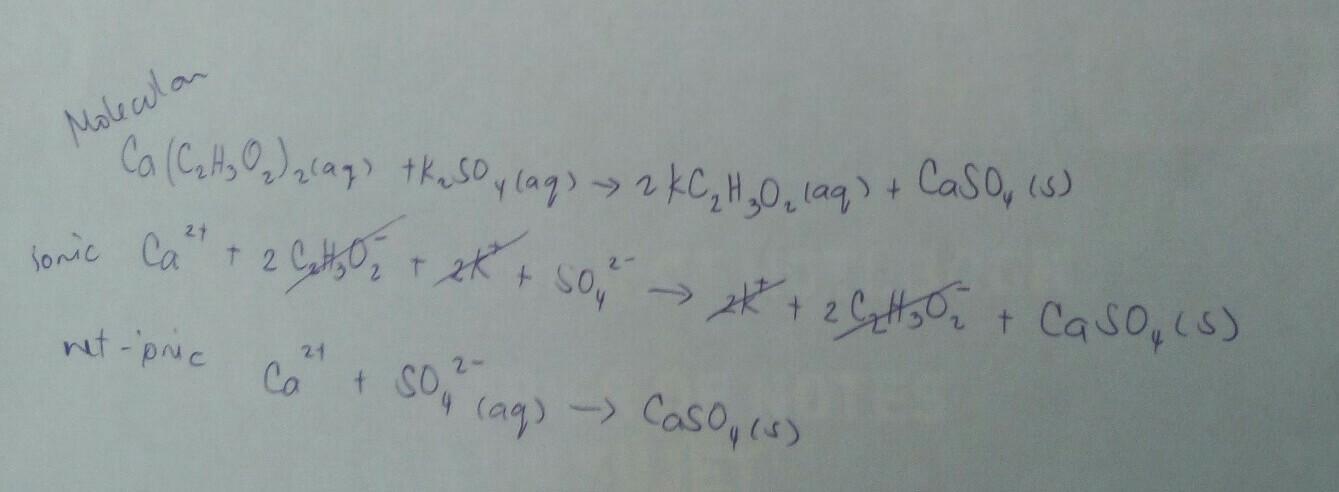 Molecular
Ca(C₂H₃O₂)₂(aq) + K₂SO₄(aq) → 2KC₂H₃O₂(aq) + CaSO₄(s)
ionic Ca²⁺ + 2C₂H₃O₂⁻ + 2K⁺ + SO₄²⁻ → 2K⁺ + 2C₂H₃O₂⁻ + CaSO₄(s)
net-ionic Ca²⁺ + SO₄²⁻(aq) → CaSO₄(s)